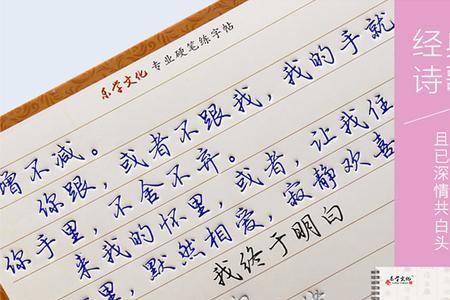 乐学文化 专业硬笔练字帖
增不减。
你跟，或者不跟我，我的手就
你手里，不舍不弃。
来我的怀里，或者，让我住
里，默然相爱，寂静欢喜
我终于明白
经典
诗歌
且已深情共白头
乐学文化